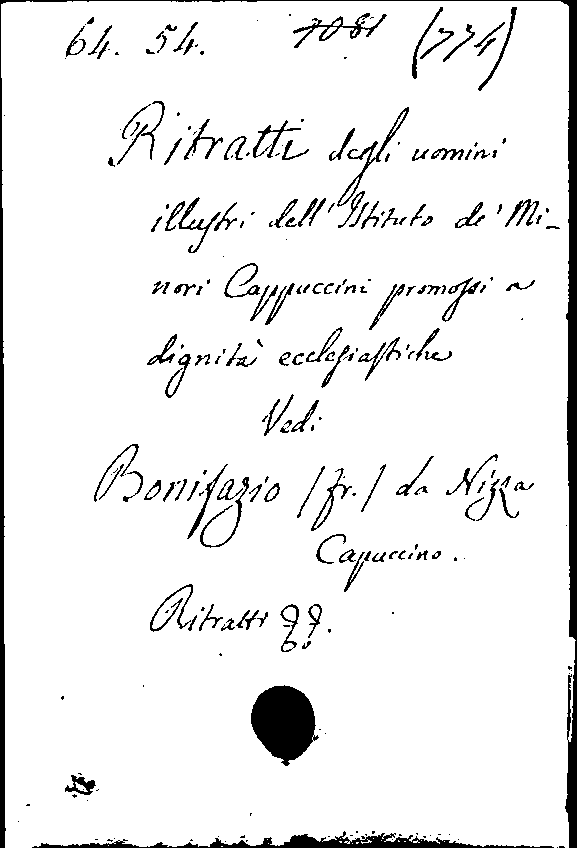 64. 54. 7081 (774)
Ritratti degli uomini
illustri dell'Istituto de' Mi-
nori Cappuccini promossi a
dignità ecclesiastiche
Vedi
Bonifazio (fr.) da Nizza
Capuccino.
Ritratti